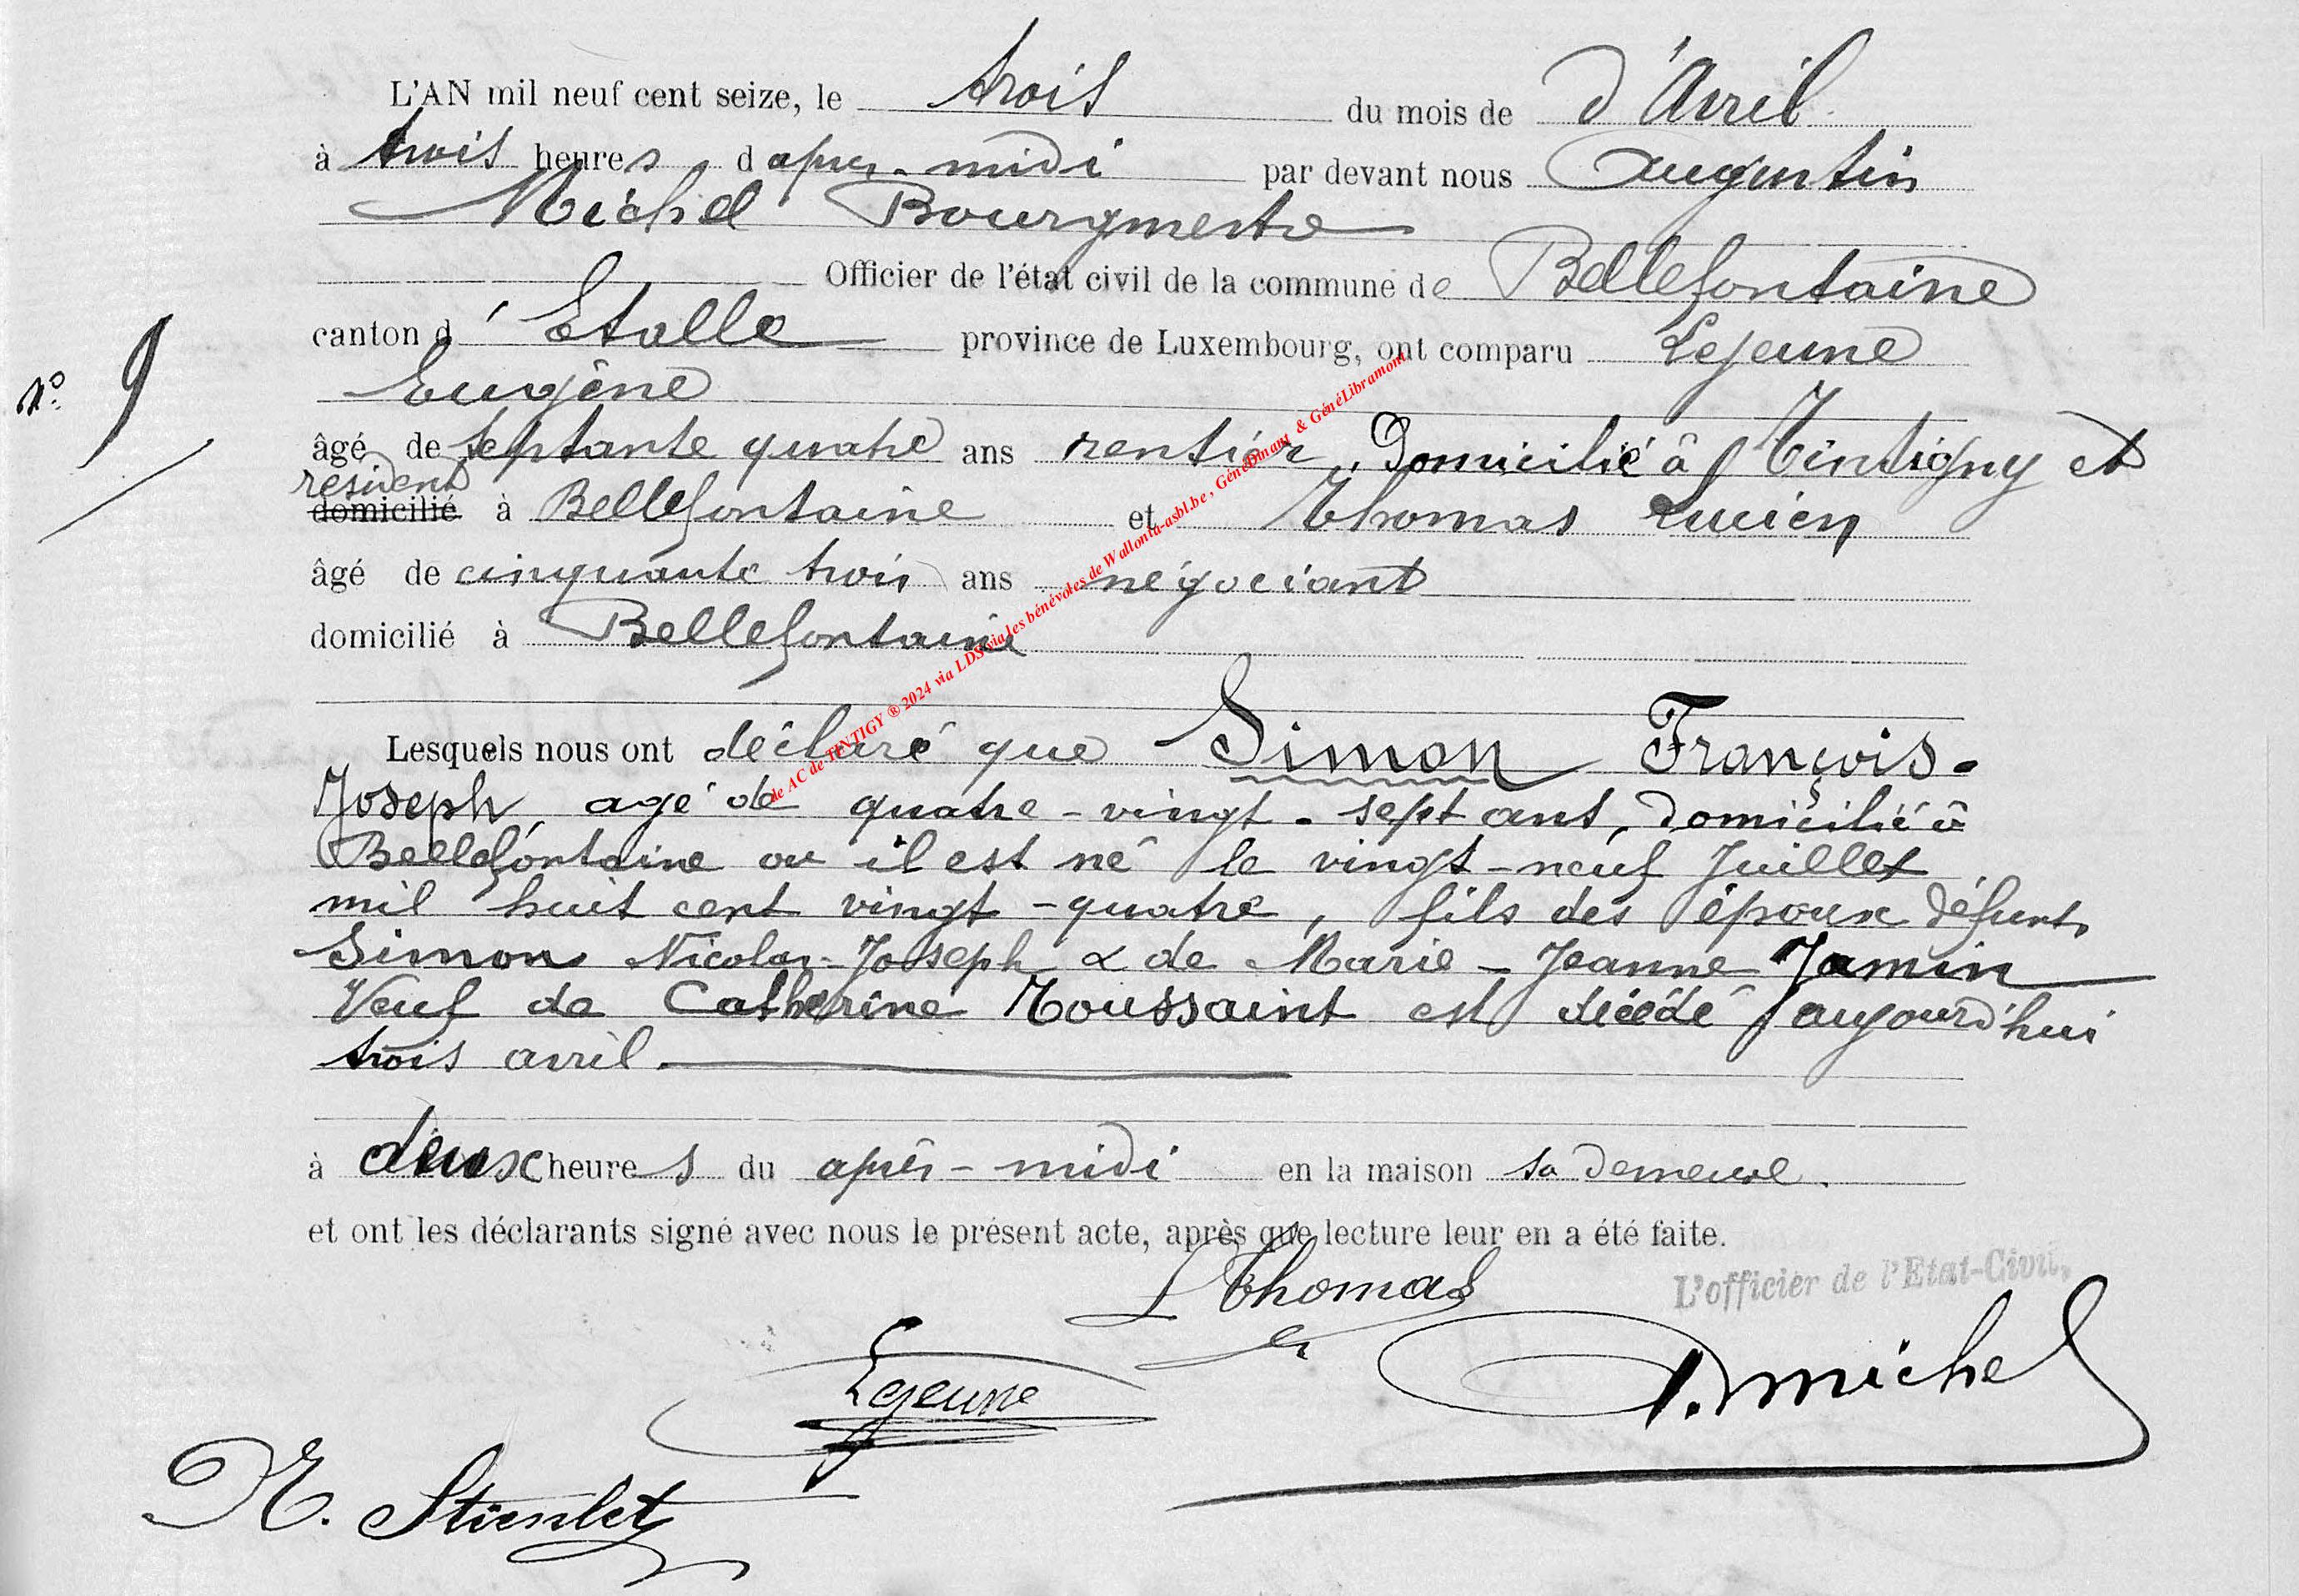 L'AN mil neuf cent seize, le trois du mois de d'Avril
à trois heures d après-midi par devant nous Augustin
Michel Bourgmestre
Officier de l'état civil de la commune de Bellefontaine
canton d'Etalle province de Luxembourg, ont comparu Lejeune
Eugène
N° 9
âgé de septante quatre ans rentier, Domicilié à Tintigny et
résident
domicilié à Bellefontaine et Thomas Lucien
âgé de cinquante trois ans négociant
domicilié à Bellefontaine
Lesquels nous ont déclaré que Simon François-
Joseph, agé de quatre-vingt-sept ans, domicilié à
Bellefontaine ou il est né le vingt-neuf Juillet
mil huit cent vingt-quatre, fils des époux défunts
Simon Nicolas-Joseph & de Marie-Jeanne Jamin
Veuf de Catherine Toussaint est décédé aujourd'hui
trois avril
à deux heures du après-midi en la maison sa demeure.
et ont les déclarants signé avec nous le présent acte, après que lecture leur en a été faite.
L Thomas
L'officier de l'Etat-Civil,
Lejeune
A. Michel
N. Stienlet
de AC de TINTIGY ® 2024 via LDS via les bénévoles de Wallonia-asbl.be, GénéDinant & GénéLibramont